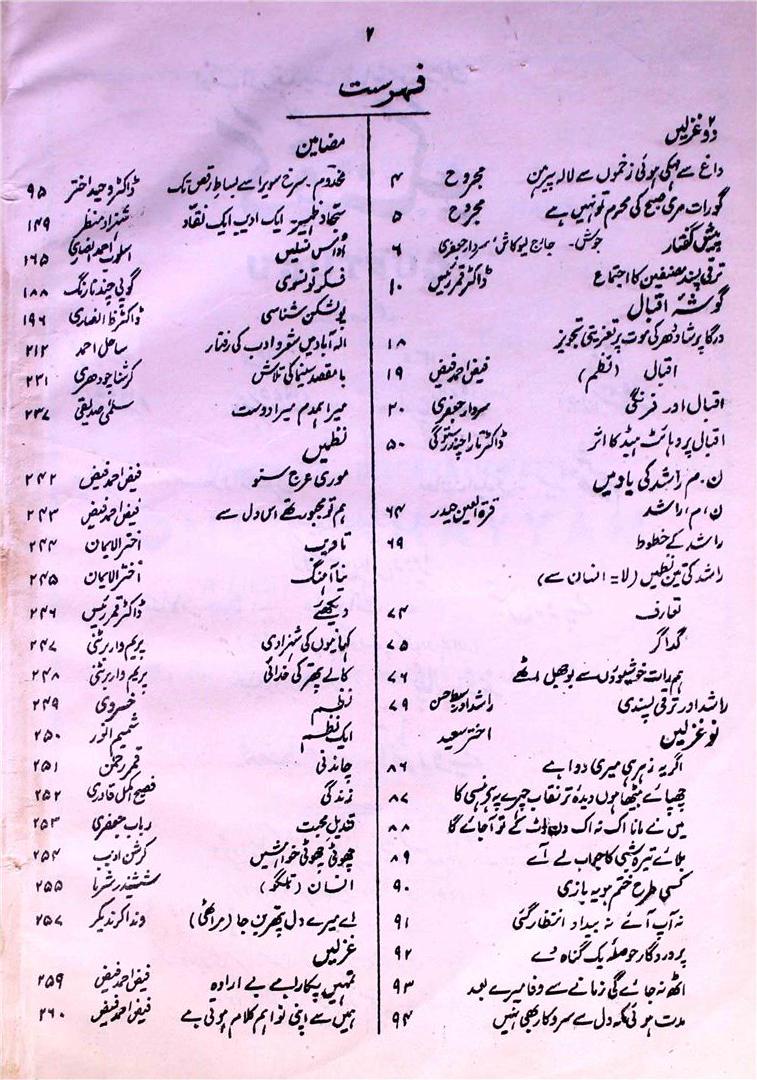 ۲
فہرست
دو غزلیں
داغ سے مہکی ہوئی زخموں سے لالہ پیرہن مجروح ۴
گو رات مری صبح کی محرم تو نہیں ہے مجروح ۵
پیش گفتار جوش۔ جارج لوکاش، سردار جعفری ۶
ترقی پسند مصنفین کا اجتماع ڈاکٹر قمر رئیس ۱۰
گوشۂ اقبال
درگا پرشاد دھر کی موت پر تعزیتی تجویز ۱۸
اقبال (نظم) فیض احمد فیض ۱۹
اقبال اور فرنگی سردار جعفری ۲۰
اقبال پر وہائٹ ہیڈ کا اثر ڈاکٹر تارا چند رستوگی ۵۰
ن۔م راشد کی یاد میں
ن۔م۔راشد قرۃ العین حیدر ۶۴
راشد کے خطوط ۶۹
راشد کی تین نظمیں (لا = انسان سے)
تعارف ۷۴
گداگر ۷۵
ہم رات خوشبوؤں سے بوجھل اٹھے ۷۶
راشد اور ترقی پسندی راشد اور سبط حسن ۷۹
نو غزلیں اختر سعید
اگر یہ زہر ہی میری دوا ہے ۸۶
چھپائے بیٹھا ہوں دیدۂ تر نقاب چہرے پہ ہے ہنسی کا ۸۷
میں نے مانا اک نہ اک دن لوٹ کے تو آجائے گا ۸۸
بلائے تیرہ شبی کا جواب لے آئے ۸۹
کسی طرح ختم ہو یہ بازی ۹۰
نہ آپ آئے نہ بیداد انتظار گئی ۹۱
پروردگار حوصلۂ یک گناہ دے ۹۲
اٹھ نہ جائے گی زمانے سے وفا میرے بعد ۹۳
مدت ہوئی کہ دل سے سروکار بھی نہیں ۹۴
مضامین
مخدوم۔ سرخ سویرا سے بساط رقص تک ڈاکٹر وحید اختر ۹۵
سجاد ظہیر۔ ایک ادیب ایک نقاد شہزاد منظر ۱۴۹
اداس نسلیں اسلوب احمد انصاری ۱۶۵
فکر تونسوی گوپی چند نارنگ ۱۸۸
پوشکن شناسی ڈاکٹر ظ انصاری ۱۹۶
الہ آباد میں شعر و ادب کی رفتار ساحل احمد ۲۱۲
بامقصد سنیما کی تلاش کرشنا چودھری ۲۲۱
میرا ہمدم میرا دوست سلمیٰ صدیقی ۲۳۷
نظمیں
موری عرج سنو فیض احمد فیض ۲۴۲
ہم تو مجبور تھے اس دل سے فیض احمد فیض ۲۴۳
تادیب اختر الایمان ۲۴۴
نیا آہنگ اختر الایمان ۲۴۵
دیکھئے ڈاکٹر قمر رئیس ۲۴۶
کہانیوں کی شہزادی پریم واربرٹنی ۲۴۷
کالے پتھر کی خدائی پریم واربرٹنی ۲۴۸
نظم خسروی ۲۴۹
ایک نظم شمیم انور ۲۵۰
چاندنی قمر رحمن ۲۵۱
زندگی فصیح اکمل قادری ۲۵۲
قندیل محبت رباب جعفری ۲۵۳
چھوٹی چھوٹی خواہشیں کرشن ادیب ۲۵۴
انسان (تلگو) ششیندر شرما ۲۵۵
اے میرے دل پتھر بن جا (مراٹھی) وندا کرندیکر ۲۵۷
غزلیں
تمہیں پکارا ہے بے ارادہ فیض احمد فیض ۲۵۹
ہمیں سے اپنی نوا ہم کلام ہوتی ہے فیض احمد فیض ۲۶۰